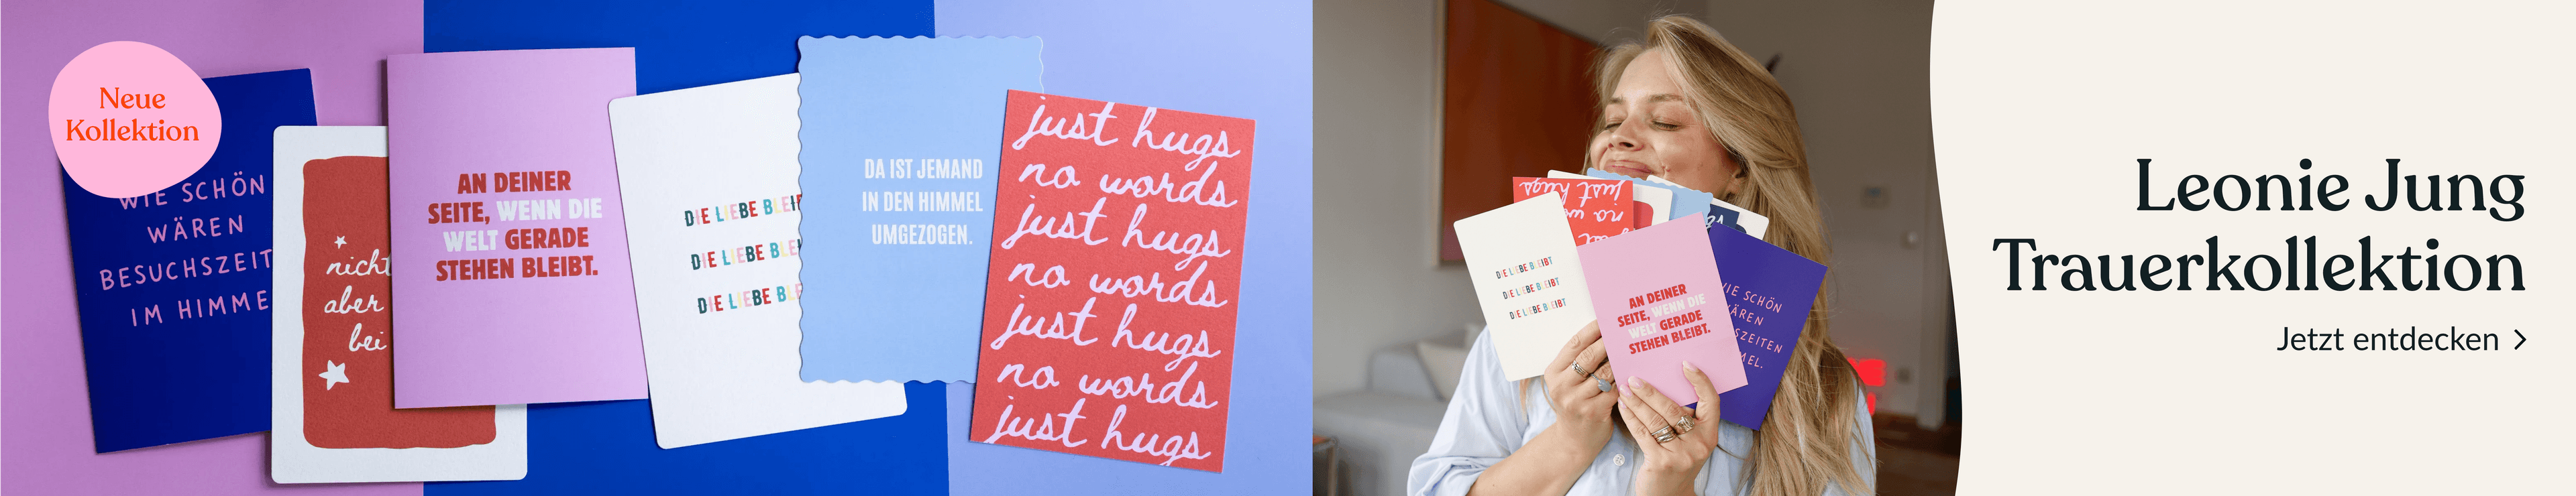 Neue
Kollektion
WIE SCHÖN
WÄREN
BESUCHSZEIT
IM HIMME
nicht
aber
bei
AN DEINER
SEITE, WENN DIE
WELT GERADE
STEHEN BLEIBT.
DIE LIEBE BLEI
DIE LIEBE BLEI
DIE LIEBE BLE
DA IST JEMAND
IN DEN HIMMEL
UMGEZOGEN.
just hugs
no words
just hugs
no words
just hugs
no words
just hugs
just hugs
no wo
DIE LIEBE BLEIBT
DIE LIEBE BLEIBT
DIE LIEBE BLEIBT
AN DEINER
SEITE, WENN DIE
WELT GERADE
STEHEN BLEIBT.
WIE SCHÖN
WÄREN
SZEITEN
MEL.
Leonie Jung
Trauerkollektion
Jetzt entdecken >